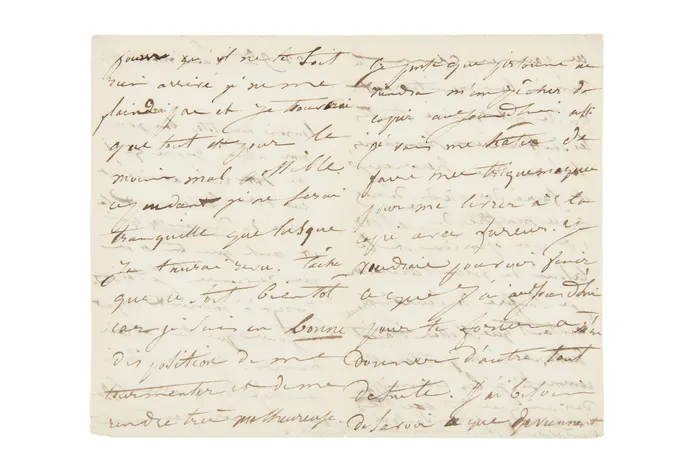 pourvu qu'il ne te soit
rien arrivé je ne me
plaindrai pas et je trouverai
que tout est pour le
moins mal possible.
cependant je ne serai
tranquille que lorsque
je t'aurai revu. tâche
que ce soit bientôt
car je suis en bonne
disposition de me
tourmenter et de me
rendre très malheureuse.
Je que personne ne
viendra m'empêcher de
copier aujourd'hui aussi
je vais me hâter de
faire mes
pour me livrer à la
copie avec fureur. Je
voudrais pouvoir finir
ce que j'ai aujourd'hui
pour te forcer à m'en
donner d'autre tout
de suite. J'ai besoin
de savoir ce que deviennent